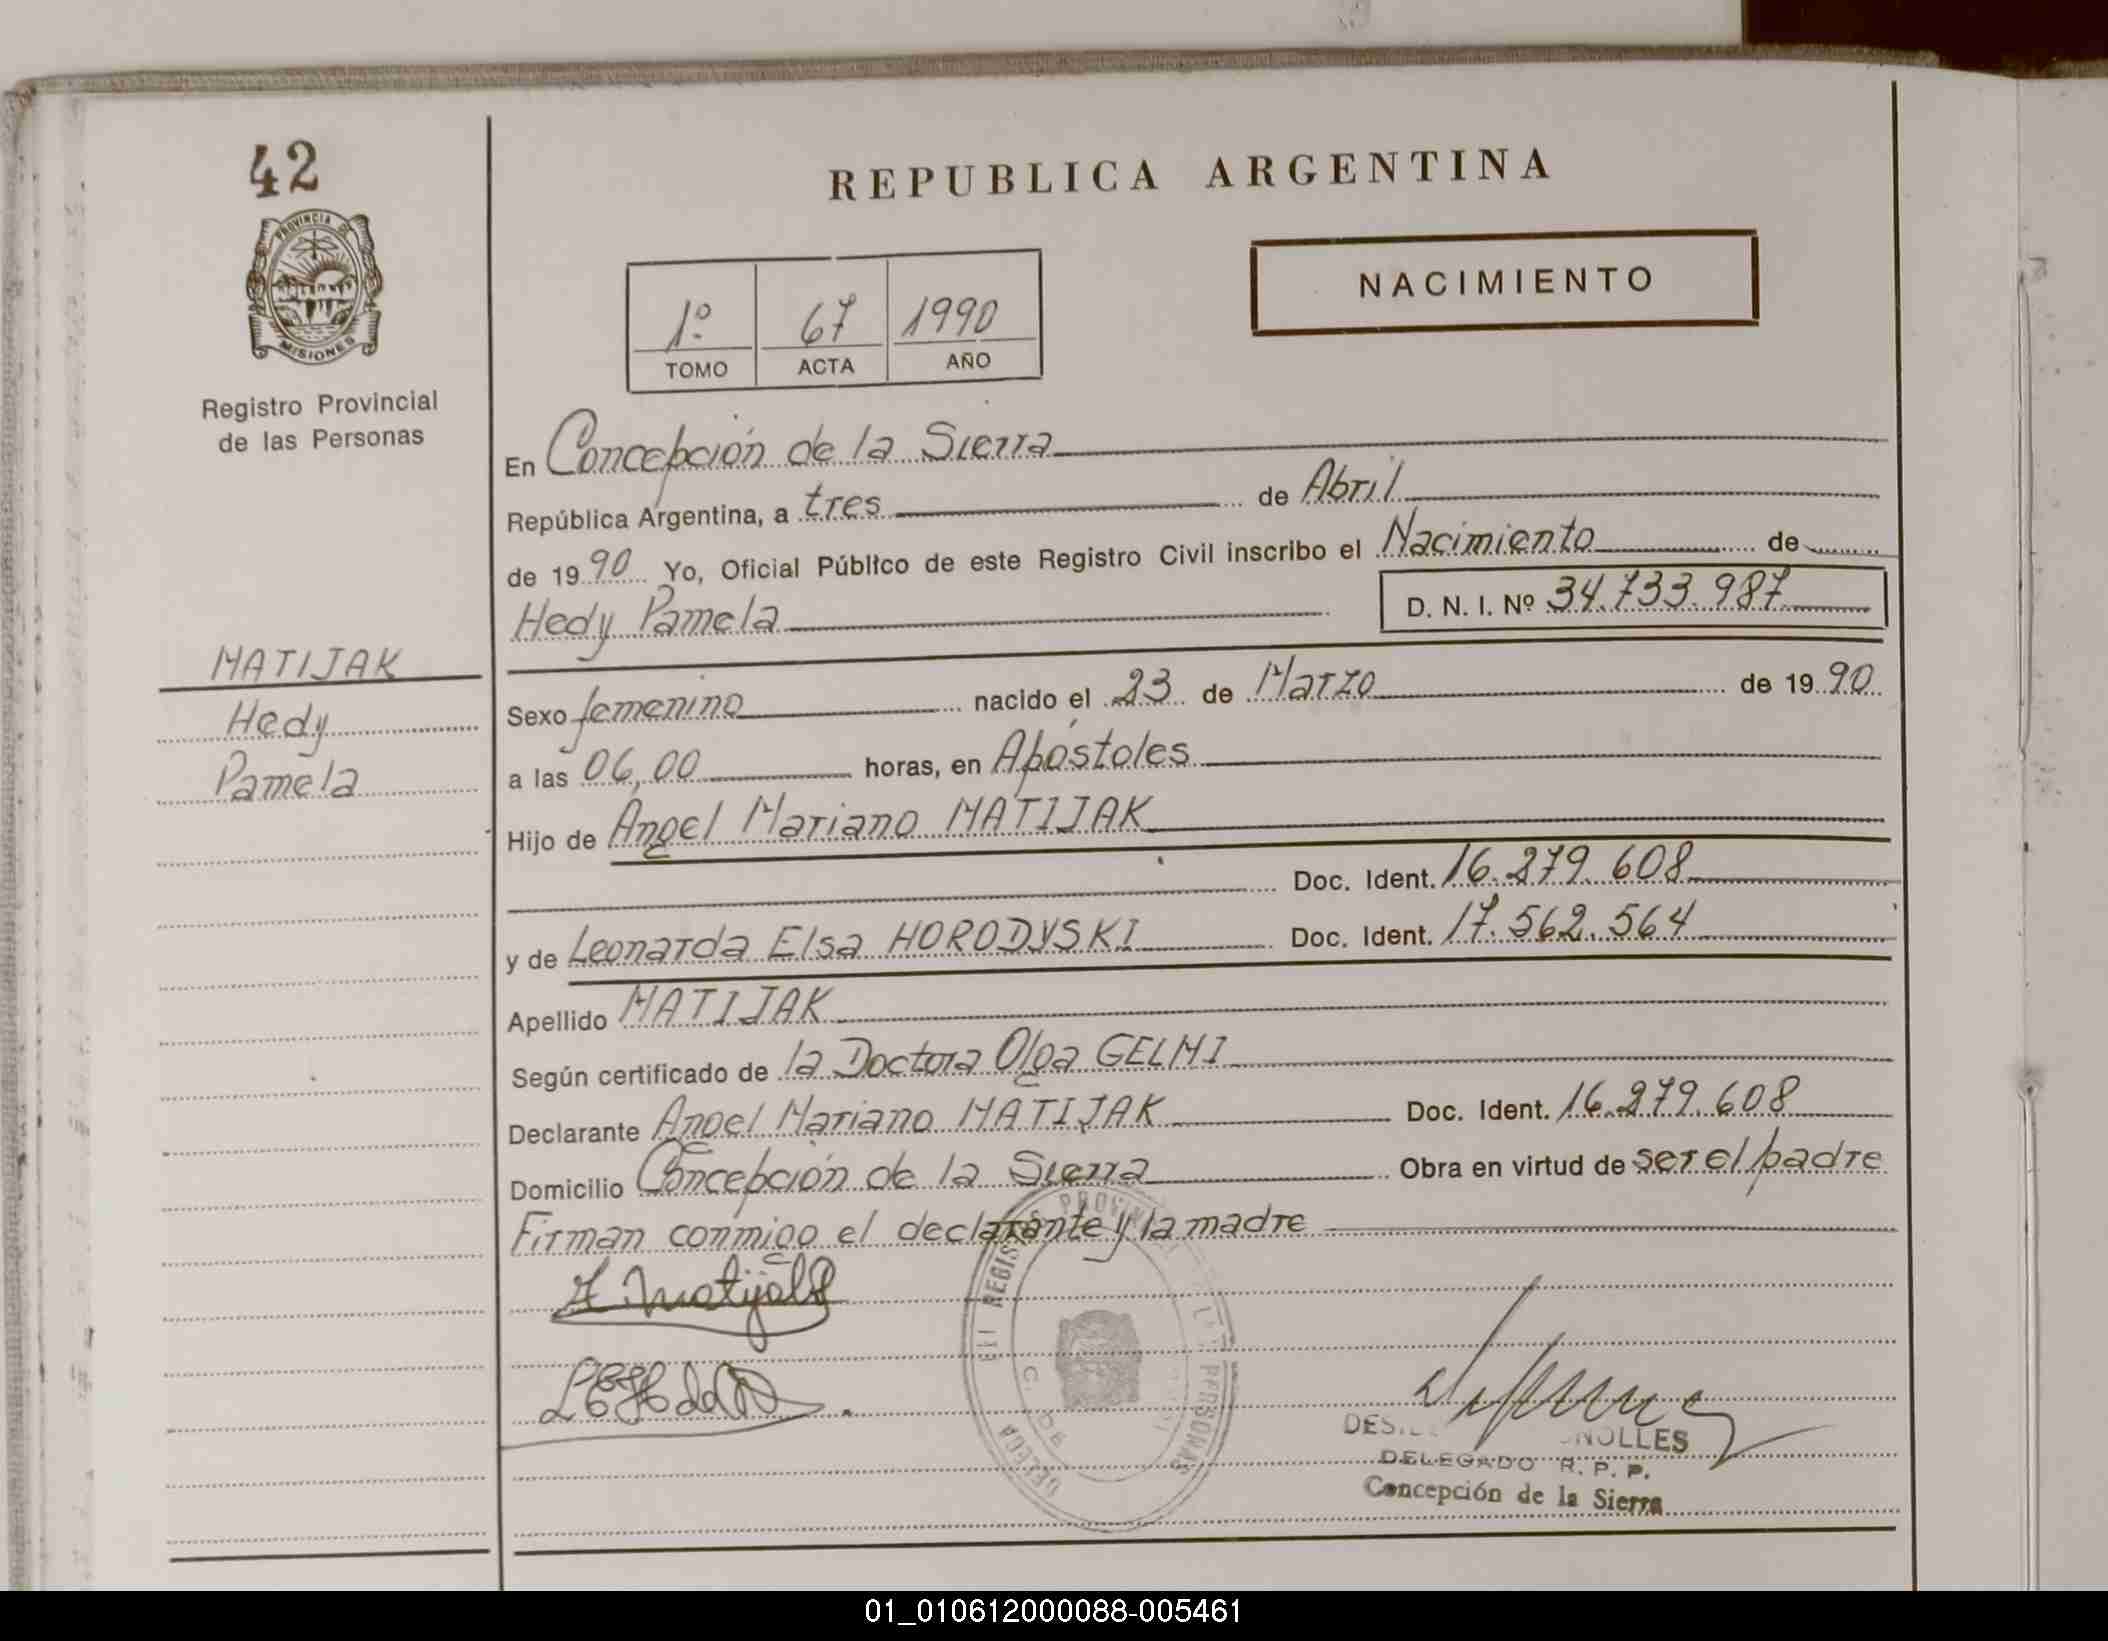 42
PROVINCIA DE
MISIONES
Registro Provincial
de las Personas
MATIJAK
Hedy
Pamela
REPUBLICA ARGENTINA
NACIMIENTO
1º 67 1990
TOMO ACTA AÑO
En Concepción de la Sierra
República Argentina, a tres de Abril
de 1990 Yo, Oficial Público de este Registro Civil inscribo el Nacimiento de
Hedy Pamela D. N. I. Nº 34.733.987
Sexo femenino nacido el 23 de Marzo de 1990
a las 06,00 horas, en Apóstoles
Hijo de Angel Mariano MATIJAK
Doc. Ident. 16.279.608
y de Leonarda Elsa HORODYSKI Doc. Ident. 17.562.564
Apellido MATIJAK
Según certificado de la Doctora Olga GELMI
Declarante Angel Mariano MATIJAK Doc. Ident. 16.279.608
Domicilio Concepción de la Sierra Obra en virtud de ser el padre
Firman conmigo el declarante y la madre
DELEGADO R. P. P.
Concepción de la Sierra
01_010612000088-005461